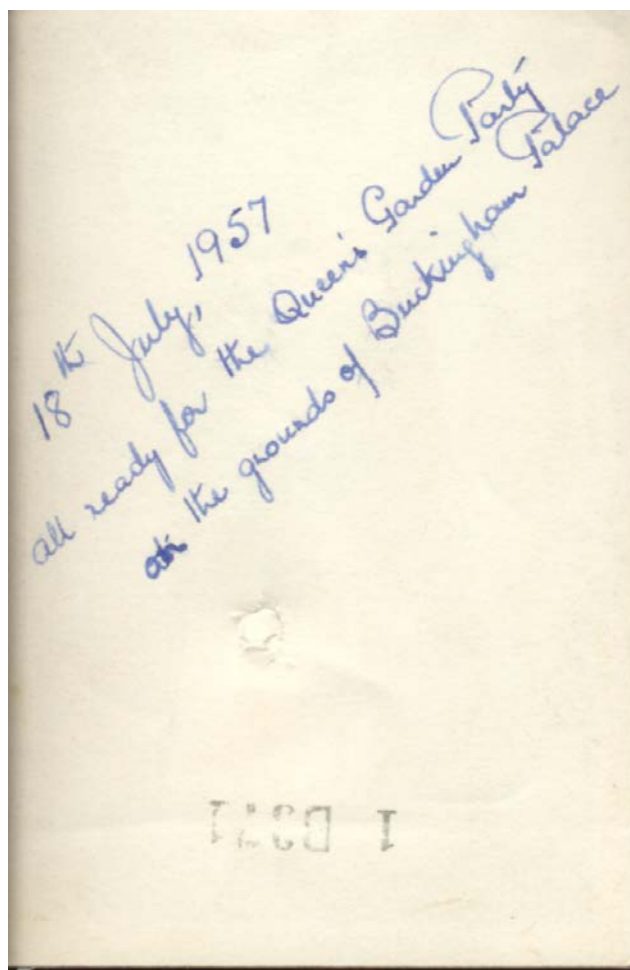 18th July, 1957
all ready for the Queen's Garden Party
at the grounds of Buckingham Palace